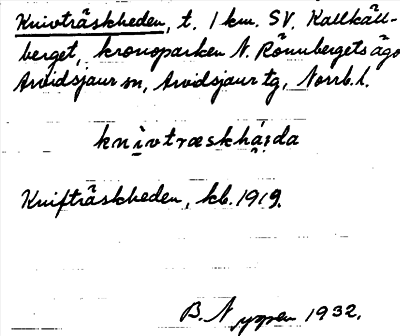 Knivträskheden, t. 1 km. SV. Kallkäll-
berget, kronoparken N. Rönnbergets ägo
Arvidsjaur sn, Arvidsjaur tg, Norrb. l.
knivtræskhá;da
Knifträskheden, kb. 1919.
B. Nyggen 1932.